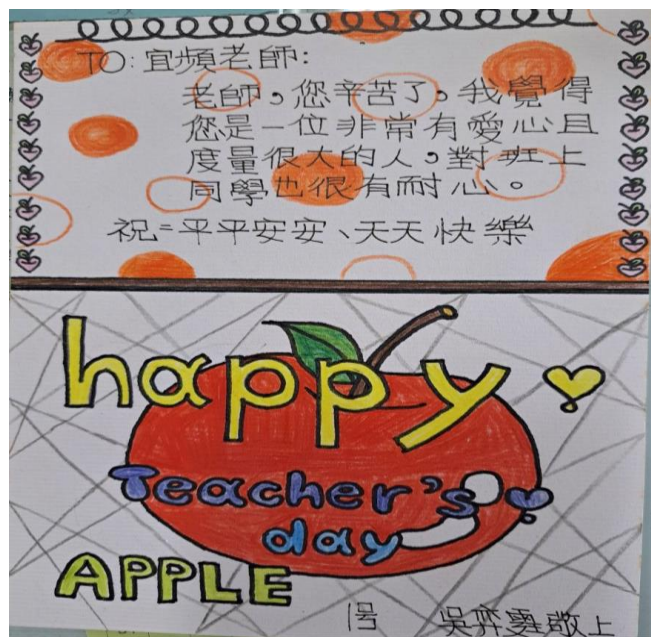 TO:宜頻老師:
老師,您辛苦了。我覺得
您是一位非常有愛心且
度量很大的人,對班上
同學也很有耐心。
祝=平平安安、天天快樂
happy
Teacher's
day
APPLE
1号 吳弈雱敬上